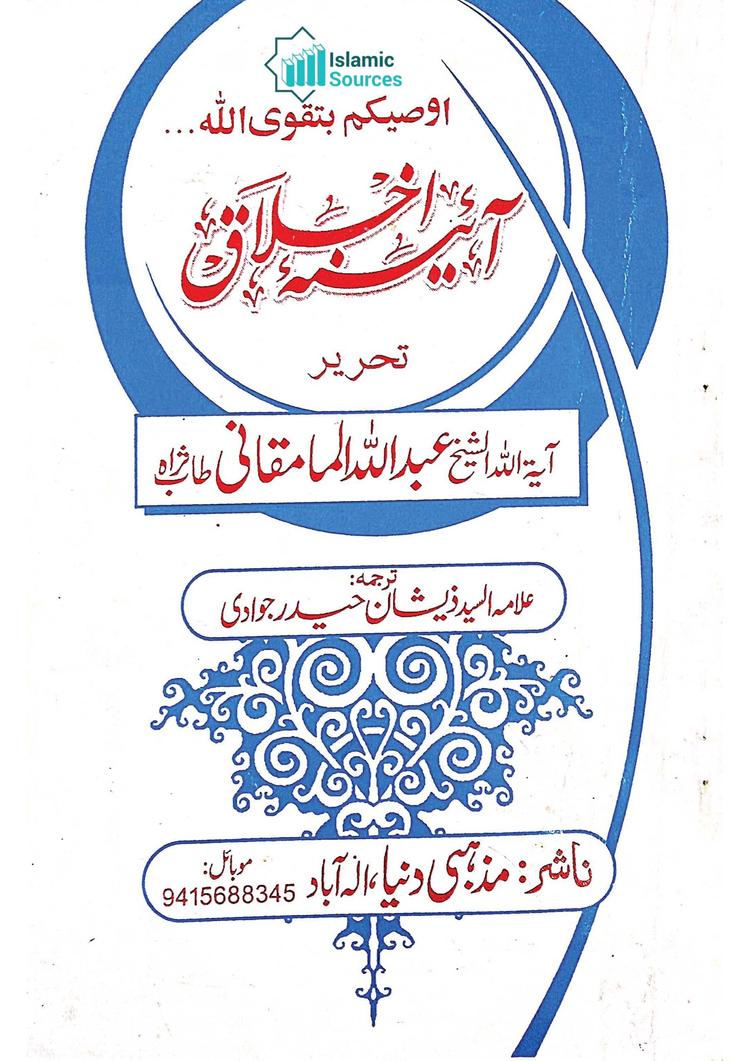 Islamic
Sources
اوصیکم بتقوی اللہ...
آئینۂ اخلاق
تحریر
آیۃ اللہ الشیخ عبد اللہ المامقانی طاب ثراہ
ترجمہ:
علامہ السید ذیشان حیدر جوادی
ناشر: مذہبی دنیا، الہ آباد
موبائل:
9415688345